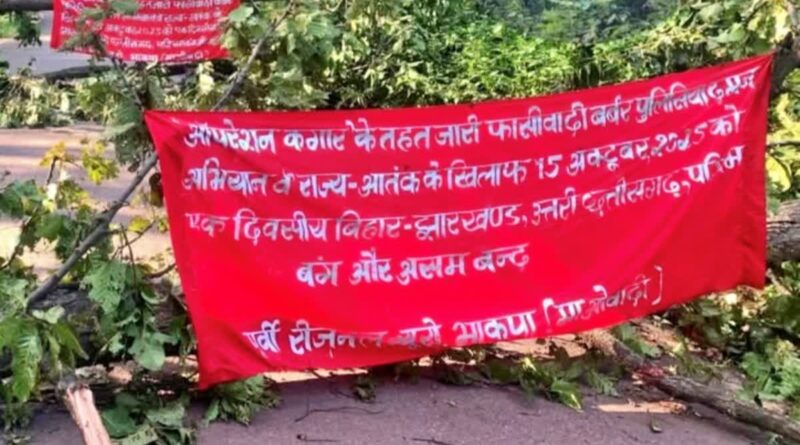 आपरेशन कगार के तहत जारी फासीवादी बर्बर पुलिसिया दमन
अभियान व राज्य-आतंक के खिलाफ 15 अक्टूबर, 2025 को
एक दिवसीय बिहार-झारखण्ड, उत्तरी छत्तीसगढ़, पश्चिम
बंग और असम बन्द
पूर्वी रीजनल ब्यूरो भाकपा (माओवादी)